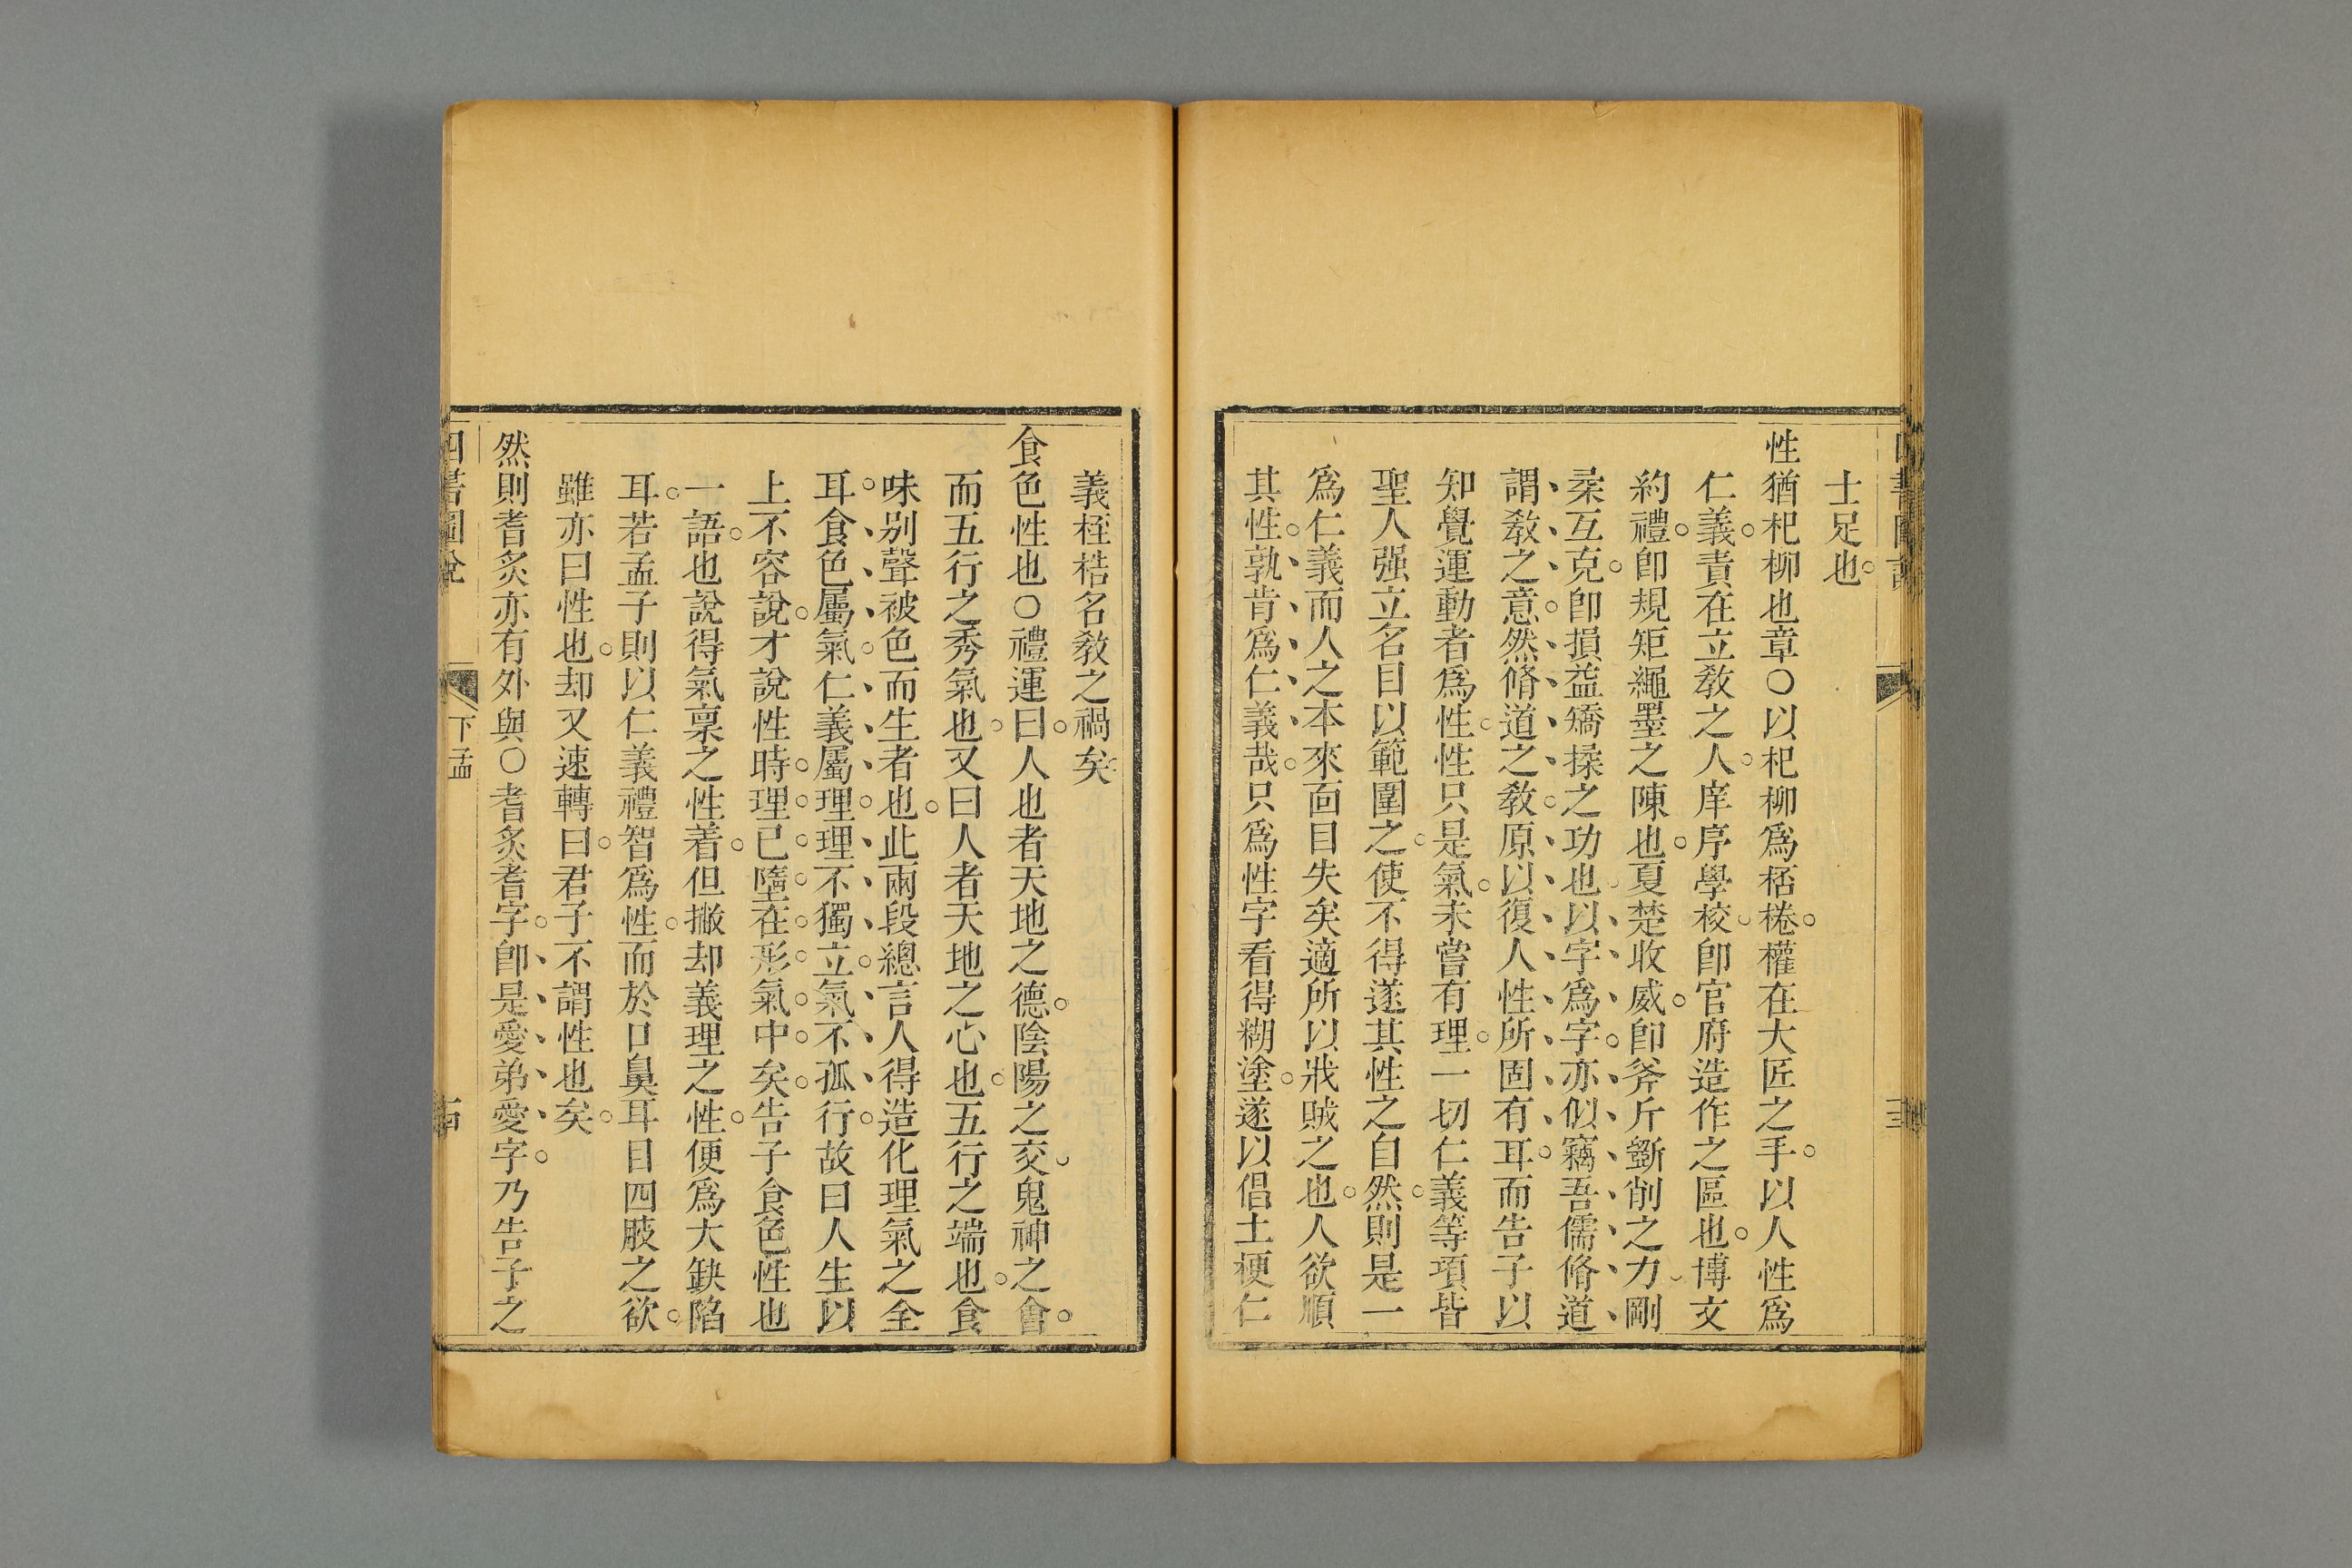 士足也
性猶杞柳也章○以杞柳爲桮棬權在大匠之手以人性爲
仁義責在立敎之人庠序學校卽官府造作之區也博文
約禮卽規矩繩墨之陳也夏楚收威卽斧斤斵削之力剛
柔互克卽損益矯揉之功也以字爲字亦似竊吾儒脩道
謂敎之意然脩道之敎原以復人性所固有耳而告子以
知覺運動者爲性性只是氣未嘗有理一切仁義等項皆
聖人强立名目以範圍之使不得遂其性之自然則是一
爲仁義而人之本來面目失矣適所以戕賊之也人欲順
其性孰肯爲仁義哉只爲性字看得糊塗遂以倡土梗仁
義桎梏名敎之禍矣
食色性也○禮運曰人也者天地之德陰陽之交鬼神之會
而五行之秀氣也又曰人者天地之心也五行之端也食
味别聲被色而生者也此兩段總言人得造化理氣之全
耳食色屬氣仁義屬理理不獨立氣不孤行故曰人生以
上不容說才說性時理已墮在形氣中矣告子食色性也
一語也說得氣稟之性着但撇却義理之性便爲大缺陷
耳若孟子則以仁義禮智爲性而於口鼻耳目四肢之欲
雖亦曰性也却又速轉曰君子不謂性也矣
然則耆炙亦有外與○耆炙耆字卽是愛弟愛字乃告子之
四書圖說
下孟